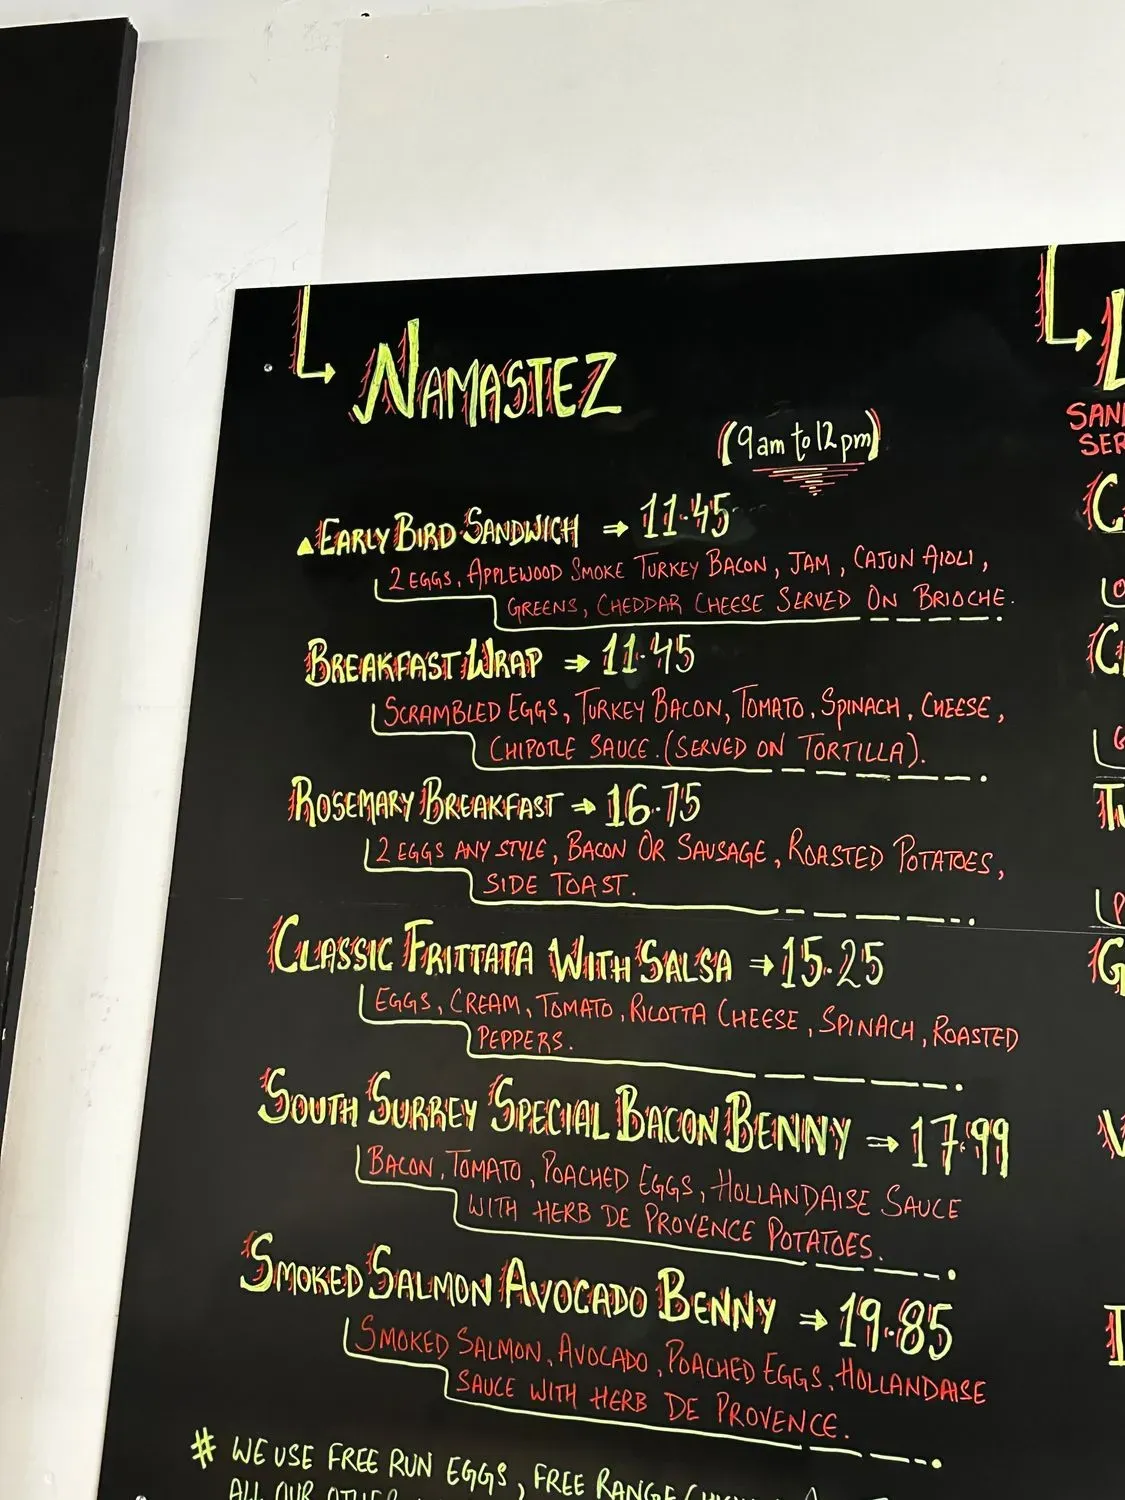 NAMASTEZ
(9am to 12pm)
EARLY BIRD SANDWICH ⇒ 11.45
2 EGGS, APPLEWOOD SMOKE TURKEY BACON, JAM, CAJUN AIOLI,
GREENS, CHEDDAR CHEESE SERVED ON BRIOCHE.
BREAKFAST WRAP ⇒ 11.45
SCRAMBLED EGGS, TURKEY BACON, TOMATO, SPINACH, CHEESE,
CHIPOTLE SAUCE. (SERVED ON TORTILLA).
ROSEMARY BREAKFAST ⇒ 16.75
2 EGGS ANY STYLE, BACON OR SAUSAGE, ROASTED POTATOES,
SIDE TOAST.
CLASSIC FRITTATA WITH SALSA ⇒ 15.25
EGGS, CREAM, TOMATO, RICOTTA CHEESE, SPINACH, ROASTED
PEPPERS.
SOUTH SURREY SPECIAL BACON BENNY ⇒ 17.99
BACON, TOMATO, POACHED EGGS, HOLLANDAISE SAUCE
WITH HERB DE PROVENCE POTATOES.
SMOKED SALMON AVOCADO BENNY ⇒ 19.85
SMOKED SALMON, AVOCADO, POACHED EGGS, HOLLANDAISE
SAUCE WITH HERB DE PROVENCE.
# WE USE FREE RUN EGGS, FREE RANGE
ALL OUR